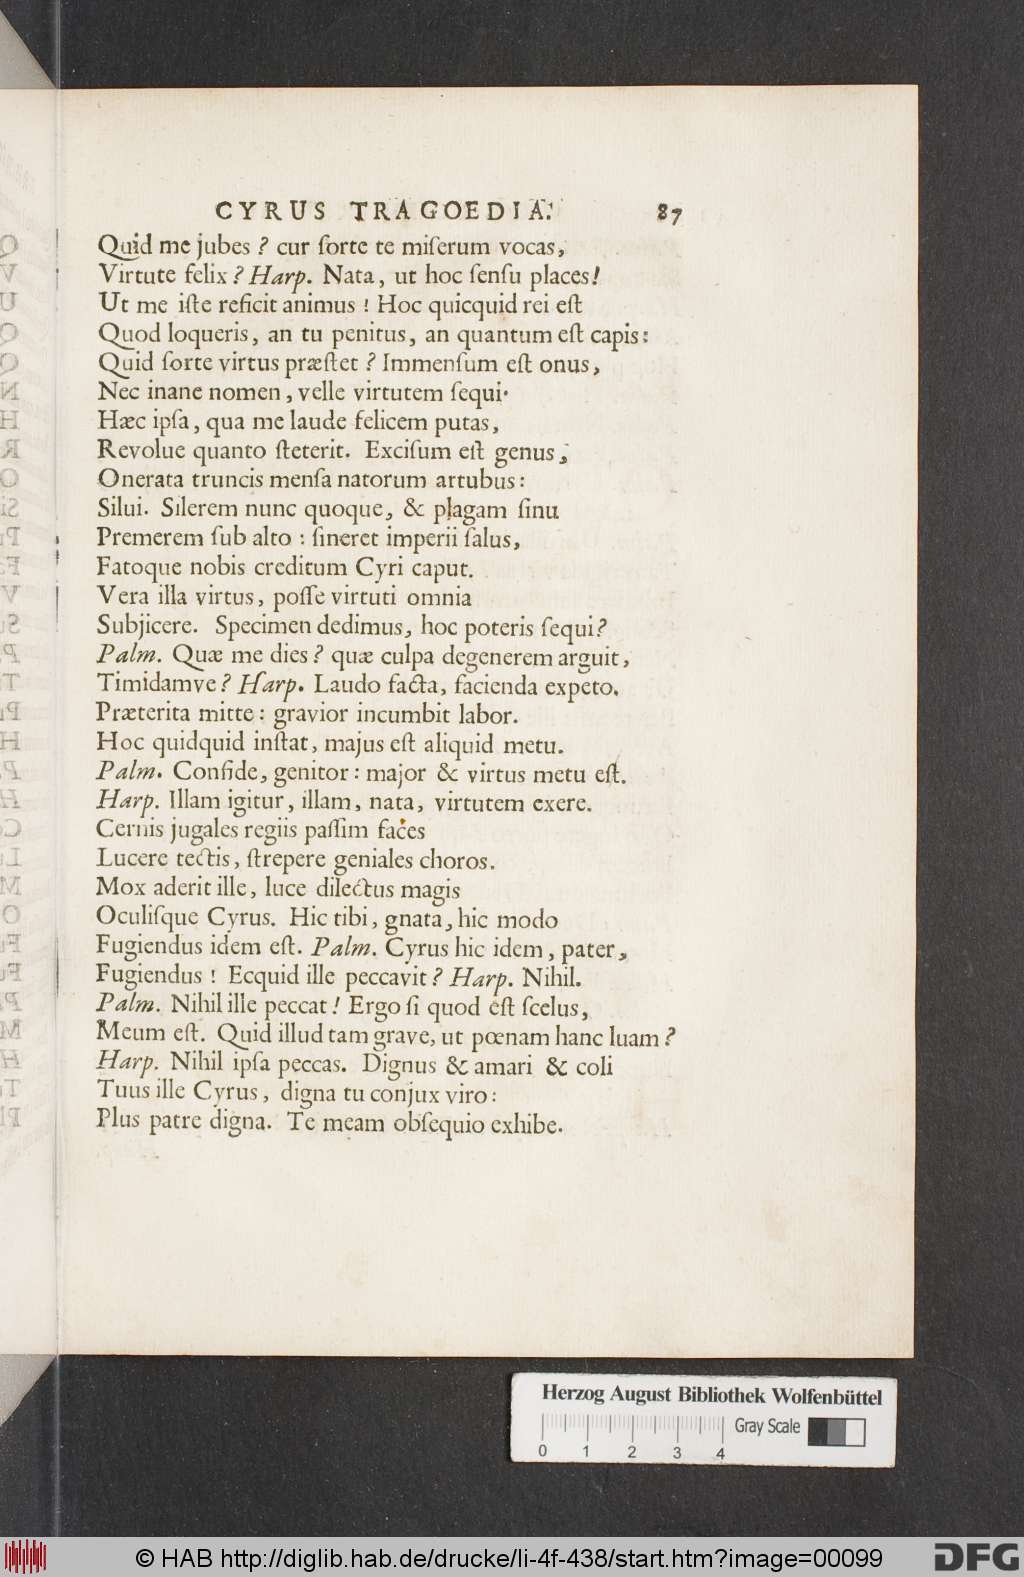 CYRUS TRAGOEDIA. 87
Quid me jubes? cur ſorte te miſerum vocas,
Virtute felix? Harp. Nata, ut hoc ſenſu places!
Ut me iſte reficit animus! Hoc quicquid rei eſt
Quod loqueris, an tu penitus, an quantum eſt capis:
Quid ſorte virtus præſtet? Immenſum eſt onus,
Nec inane nomen, velle virtutem ſequi.
Hæc ipſa, qua me laude felicem putas,
Revolue quanto ſteterit. Exciſum eſt genus,
Onerata truncis menſa natorum artubus:
Silui. Silerem nunc quoque, & plagam ſinu
Premerem ſub alto: ſineret imperii ſalus,
Fatoque nobis creditum Cyri caput.
Vera illa virtus, poſſe virtuti omnia
Subjicere. Specimen dedimus, hoc poteris ſequi?
Palm. Quæ me dies? quæ culpa degenerem arguit,
Timidamve? Harp. Laudo facta, facienda expeto.
Præterita mitte: gravior incumbit labor.
Hoc quidquid inſtat, majus eſt aliquid metu.
Palm. Confide, genitor: major & virtus metu eſt.
Harp. Illam igitur, illam, nata, virtutem exere.
Cernis jugales regiis paſſim faces
Lucere tectis, ſtrepere geniales choros.
Mox aderit ille, luce dilectus magis
Oculiſque Cyrus. Hic tibi, gnata, hic modo
Fugiendus idem eſt. Palm. Cyrus hic idem, pater,
Fugiendus! Ecquid ille peccavit? Harp. Nihil.
Palm. Nihil ille peccat! Ergo ſi quod eſt ſcelus,
Meum eſt. Quid illud tam grave, ut pœnam hanc luam?
Harp. Nihil ipſa peccas. Dignus & amari & coli
Tuus ille Cyrus, digna tu conjux viro:
Plus patre digna. Te meam obſequio exhibe.
Herzog August Bibliothek Wolfenbüttel
Gray Scale
0 1 2 3 4
© HAB http://diglib.hab.de/drucke/li-4f-438/start.htm?image=00099
DFG